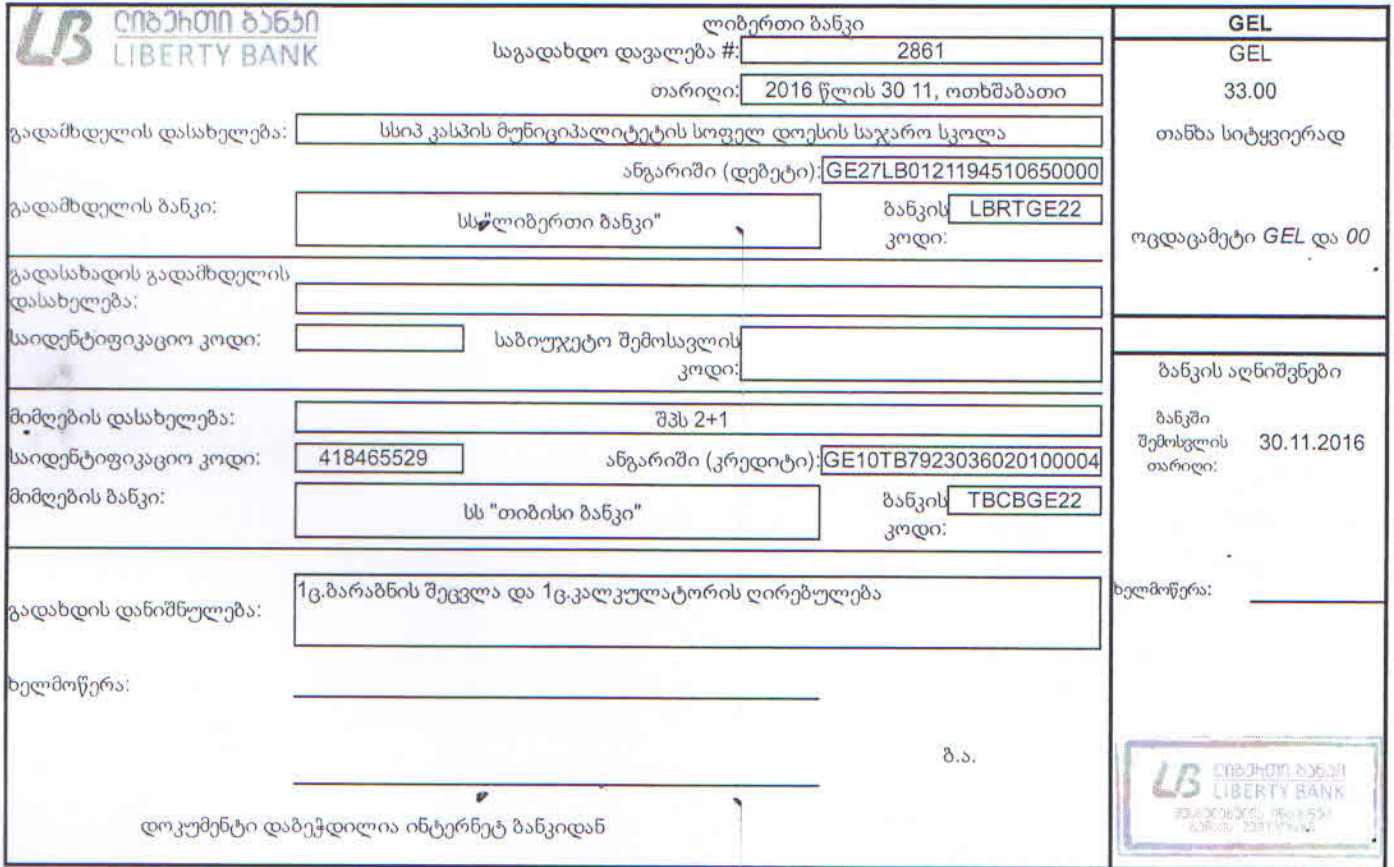 ლიბერთი ბანკი
LB LIBERTY BANK
ლიბერთი ბანკი
საგადახდო დავალება #: 2861
თარიღი: 2016 წლის 30 11, ოთხშაბათი
გადამხდელის დასახელება: სსიპ კასპის მუნიციპალიტეტის სოფელ დოესის საჯარო სკოლა
ანგარიში (დებეტი): GE27LB0121194510650000
გადამხდელის ბანკი: სს "ლიბერთი ბანკი" ბანკის კოდი: LBRTGE22
გადასახადის გადამხდელის
დასახელება:
საიდენტიფიკაციო კოდი: საბიუჯეტო შემოსავლის
კოდი:
მიმღების დასახელება: შპს 2+1
საიდენტიფიკაციო კოდი: 418465529 ანგარიში (კრედიტი): GE10TB7923036020100004
მიმღების ბანკი: სს "თიბისი ბანკი" ბანკის კოდი: TBCBGE22
გადახდის დანიშნულება: 1ც.ბარაბნის შეცვლა და 1ც.კალკულატორის ღირებულება
ხელმოწერა:
ბ.ა.
დოკუმენტი დაბეჭდილია ინტერნეტ ბანკიდან
GEL
GEL
33.00
თანხა სიტყვიერად
ოცდაცამეტი GEL და 00
ბანკის აღნიშვნები
ბანკში
შემოსვლის 30.11.2016
თარიღი:
ხელმოწერა:
ლიბერთი ბანკი
LB LIBERTY BANK